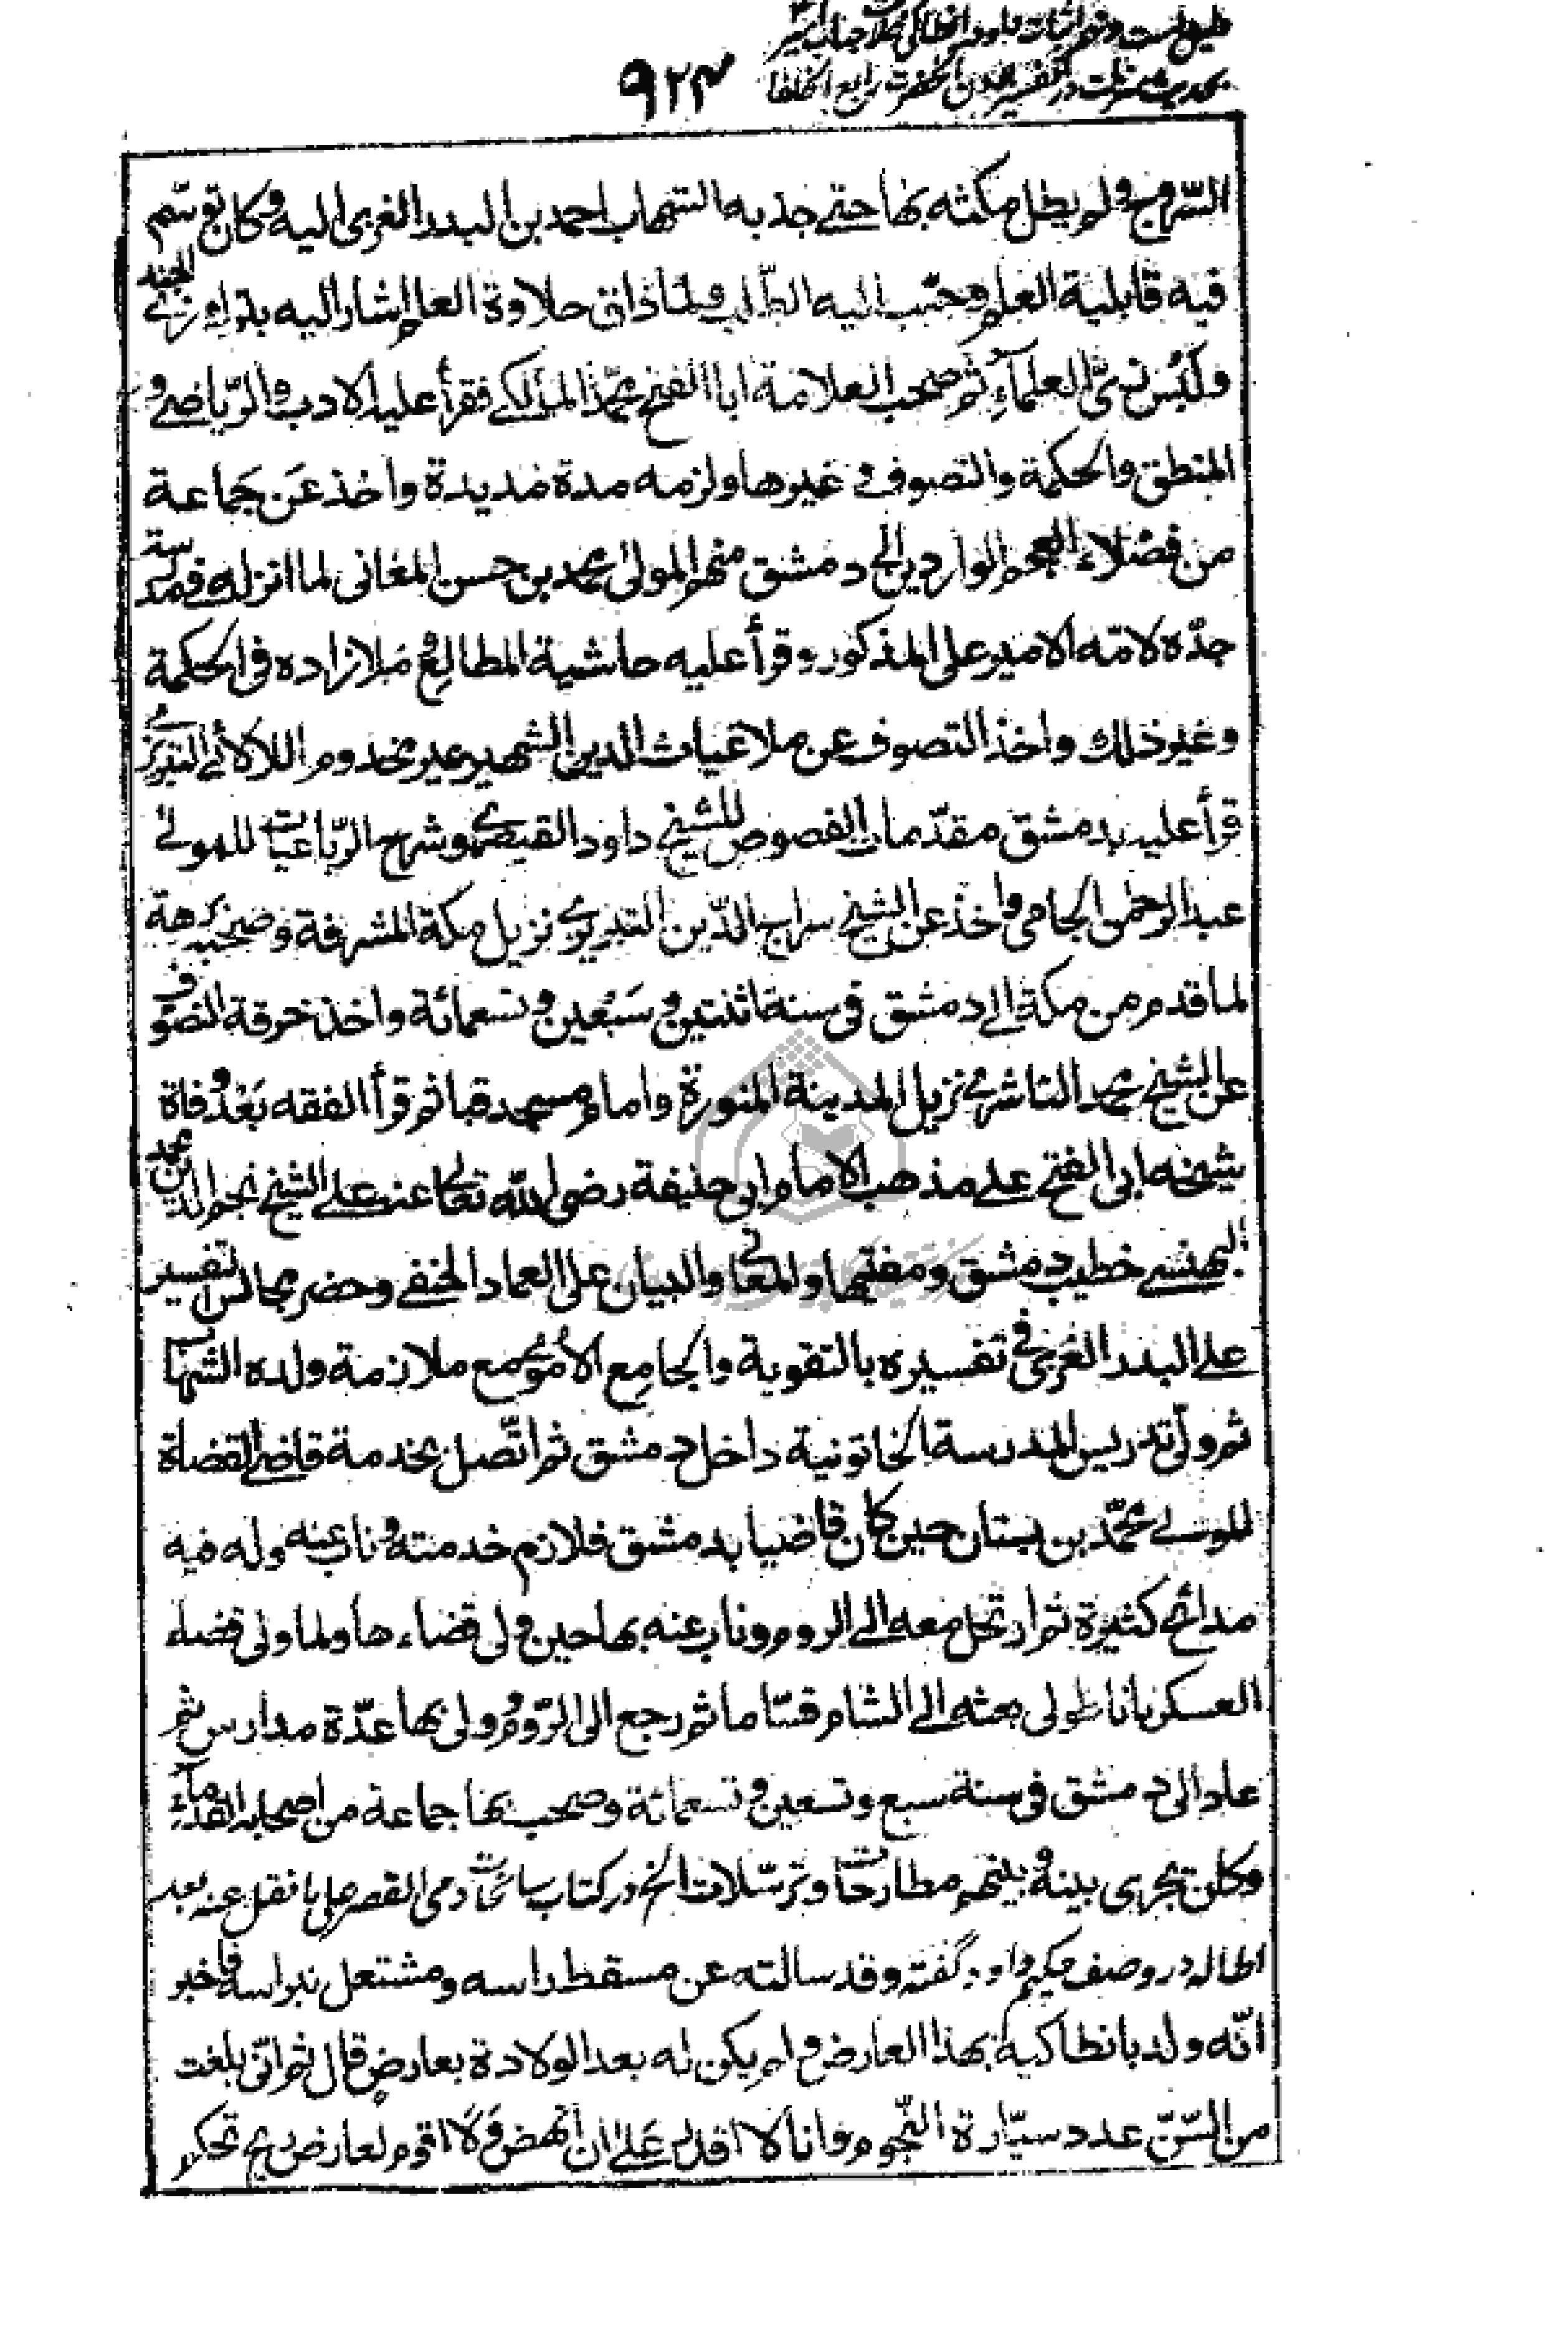 بحديث منزلت در تفسير بودن آنحضرت رابع الخلفا
٩٢٣
السروج ولم يطل مكثه بها حتى جذبه الشهاب احمد بن البدر الغزى اليه وكان توسّم
فيه قابلية العلم وحبّب اليه الطلب ولما ذاق حلاوة العلم اشار اليه بترك زىّ الجند
ولبس زىّ العلمآء ثم صحب العلامة ابا الفتح محمّد المالكى فقرأ عليه الادب والرّياضى و
المنطق والحكمة والتصوف وغيرها ولزمه مدة مديدة واخذ عن جماعة
من فضلاء العجم الواردين الى دمشق منهم المولى محمد بن حسن المغانى لما انزله فى مدرسة
جدّه لامّه الامير على المذكور وقرأ عليه حاشية المطالع و ملازاده فى الحكمة
وغير ذلك واخذ التصوف عن ملا غياث الدين الشهير بمير مخدوم اللالائى التبريزى
قرأ عليه بدمشق مقدّمات الفصوص للشيخ داود القيصرى وشرح الرّباعيات للمولى
عبد الرحمن الجامى واخذ عن الشيخ سراج الدّين التبريزى نزيل مكة المشرفة وصحبه برهة
لما قدم من مكة الى دمشق فى سنة اثنتين و سبعين و تسعمائة واخذ خرقة التصوف
عن الشيخ محمد الناشرى نزيل المدينة المنورة وامام مسجد قبا ثم قرأ الفقه بعد وفاة
شيخه ابى الفتح على مذهب الامام ابى حنيفة رضى الله تعالى عنه على الشيخ نجم الدين محمد
البهنسى خطيب دمشق ومفتيها والمعانى والبيان على العماد الحنفى وحضر مجالس التفسير
على البدر الغزى فى تفسيره بالتقوية والجامع الاموى مع ملازمة ولده الشهاب
ثم ولى تدريس المدرسة الخاتونية داخل دمشق ثم اتّصل بخدمة قاضى القضاة
المولى محمّد بن بستان حين كان قاضيا بدمشق فلازم خدمته وناب عنه وله فيه
مدائح كثيرة ثم ارتحل معه الى الروم وناب عنه بها حين ولى قضاءها ولما ولى قضاء
العسكر باناطولى بعثه الى الشام قسّاما ثم رجع الى الرّوم وولى بها عدّة مدارس ثم
عاد الى دمشق فى سنة سبع وتسعين و تسعمائة وصحب بها جماعة من اصحابه القدمآء
وكان تجرى بينه و بينهم مطارحات وترسّلات الخ در كتاب سانحات دمى القصر على ما نقل عنه بعد
اطاله در وصف حكيم داود گفته وقد سالته عن مسقط راسه ومشتعل نبراسه فاخبر
انّه ولد بانطاكية بهذا العارض ولم يكن له بعد الولادة بعارض قال ثم انّى بلغت
من السّنّ عدد سيّارة النّجوم وانا لا اقدر على ان انهض ولا اقوم لعارض ريح تحكم